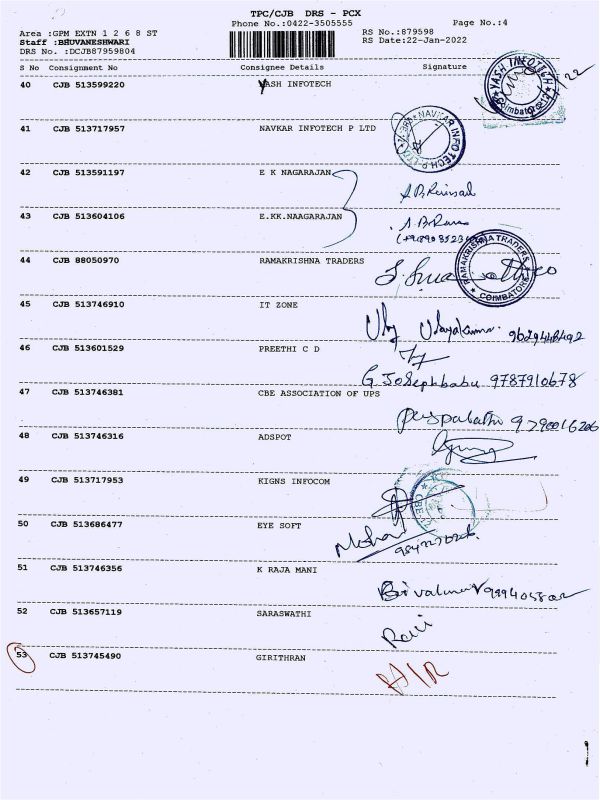 TPC/CJB DRS - PCX
Phone No.:0422-3505555 Page No.:4
Area :GPM EXTN 1 2 6 8 ST RS No.:879598
Staff :BHUVANESHWARI RS Date:22-Jan-2022
DRS No. :DCJB87959804
S No Consignment No Consignee Details Signature
40 CJB 513599220 YASH INFOTECH
YASH INFOTECH
41 CJB 513717957 NAVKAR INFOTECH P LTD
NAVKAR INFOTECH P LTD
42 CJB 513591197 E K NAGARAJAN
43 CJB 513604106 E.KK.NAAGARAJAN
44 CJB 88050970 RAMAKRISHNA TRADERS
RAMAKRISHNA TRADERS
COIMBATORE
45 CJB 513746910 IT ZONE
46 CJB 513601529 PREETHI C D
G Josephbabu 9787910678
47 CJB 513746381 CBE ASSOCIATION OF UPS
48 CJB 513746316 ADSPOT
49 CJB 513717953 KIGNS INFOCOM
50 CJB 513686477 EYE SOFT
51 CJB 513746356 K RAJA MANI
52 CJB 513657119 SARASWATHI
Ravi
53 CJB 513745490 GIRITHRAN